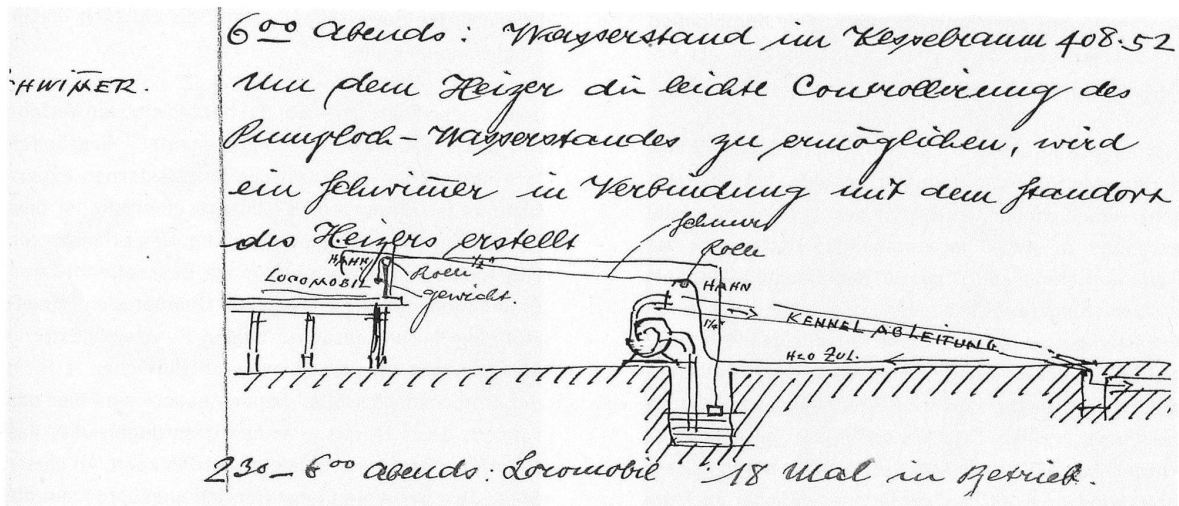 6⁰⁰ Abends: Wasserstand im Kesselraum 408.52
CHWIM̅ER.
Um dem Heizer die leichte Controllierung des
Pumploch-Wasserstandes zu ermöglichen, wird
ein Schwim̅er in Verbindung mit dem Standort
des Heizers erstellt
Schnur
Rolle
HAHN
½"
Rolle
LOCOMOBIL
gewicht.
HAHN
1¼"
KENNEL ABLEITUNG
H2O ZUL.
2 30 - 6⁰⁰ abends: Locomobil 18 Mal in Betrieb.